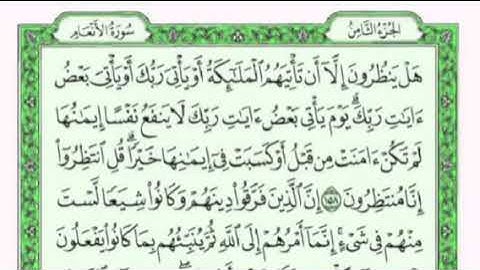 الجُزْءُ الثَّامِنُ
سُورَةُ الأَنْعَامِ
هَلْ يَنظُرُونَ إِلَّآ أَن تَأْتِيَهُمُ ٱلْمَلَٰٓئِكَةُ أَوْ يَأْتِىَ رَبُّكَ أَوْ يَأْتِىَ بَعْضُ
ءَايَٰتِ رَبِّكَ ۗ يَوْمَ يَأْتِى بَعْضُ ءَايَٰتِ رَبِّكَ لَا يَنفَعُ نَفْسًا إِيمَٰنُهَا
لَمْ تَكُنْ ءَامَنَتْ مِن قَبْلُ أَوْ كَسَبَتْ فِىٓ إِيمَٰنِهَا خَيْرًا ۗ قُلِ ٱنتَظِرُوٓا۟
إِنَّا مُنتَظِرُونَ ١٥٨ إِنَّ ٱلَّذِينَ فَرَّقُوا۟ دِينَهُمْ وَكَانُوا۟ شِيَعًا لَّسْتَ
مِنْهُمْ فِى شَىْءٍ ۚ إِنَّمَآ أَمْرُهُمْ إِلَى ٱللَّهِ ثُمَّ يُنَبِّئُهُم بِمَا كَانُوا۟ يَفْعَلُونَ